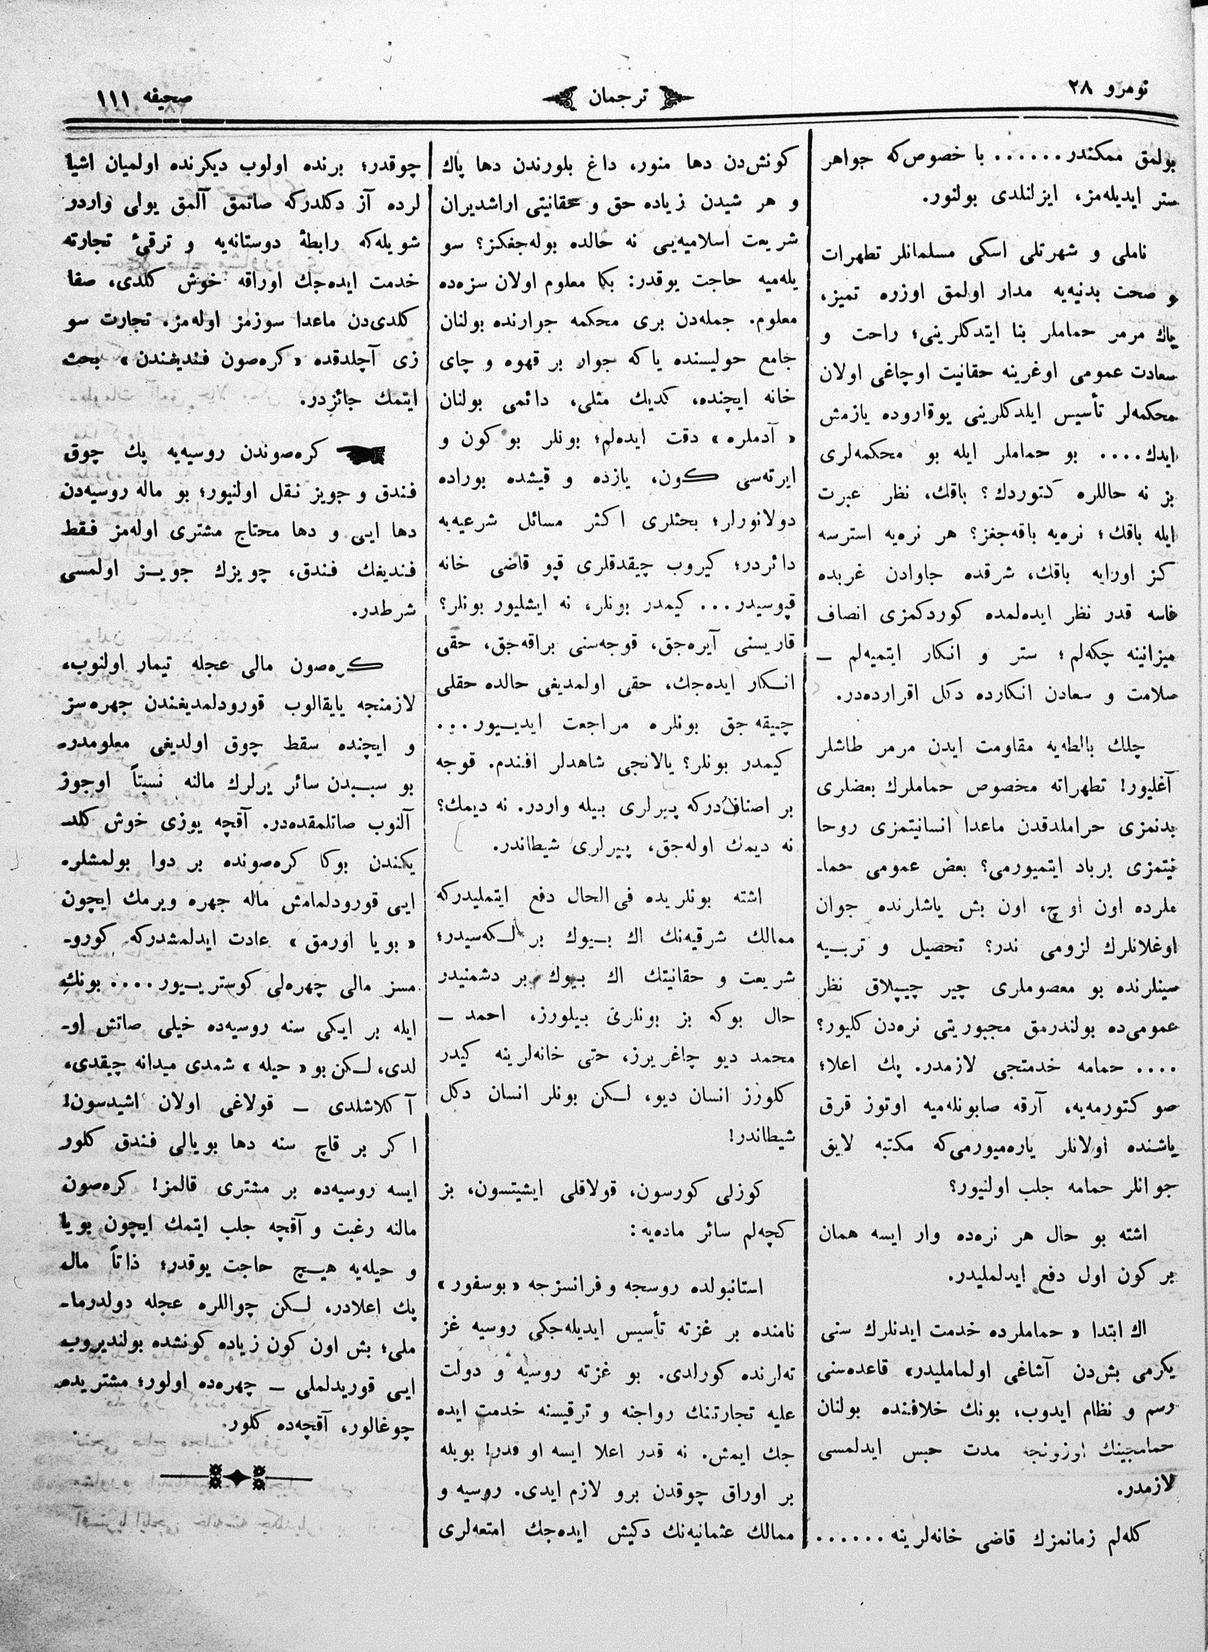 نومرو ٢٨
ترجمان
صحیفه ١١١
بولمق ممكندر...... با خصوص‌كه جواهر
ستر ایدیله‌مز، ایزلنلدی بولنور.
ناملی و شهرتلی اسكی مسلمانلر تطهرات
و صحت بدنیه‌یه مدار اولمق اوزره تمیز،
پاك مرمر حماملر بنا ایتدكلرینی؛ راحت و
سعادت عمومی اوغرینه حقانیت اوچاغی اولان
محكمه‌لر تأسیس ایلدكلرینی یوقاروده یازمش
ایدك.... بو حماملر ایله بو محكمه‌لری
بز نه حاللره كتوردك؟ باقك، نظر عبرت
ایله باقك؛ نره‌یه باقه‌جغز؟ هر نره‌یه استرسه
كز اورایه باقك، شرقده جاوادن غربده
فاسه قدر نظر ایده‌لمده كوردكمزی انصاف
میزانینه چكه‌لم؛ ستر و انكار ایتمیه‌لم ــ
سلامت و سعادن انكارده دكل اقرارده‌در.
چلك بالطه‌یه مقاومت ایدن مرمر طاشلر
آغلیور! تطهراته مخصوص حماملرك بعضلری
بدنمزی حراملدقدن ماعدا انسانیتمزی روحا
نیتمزی برباد ایتمیورمی؟ بعض عمومی حما۔
ملرده اون اوچ، اون بش یاشلرنده جوان
اوغلانلرك لزومی ندر؟ تحصیل و تربیه
سینلرنده بو معصوملری چیر چیپلاق نظر
عمومی‌ده بولندرمق مجبوریتی نره‌دن كلیور؟
.... حمامه خدمتجی لازمدر. پك اعلا؛
صو كتورمه‌یه، آرقه صابونله‌میه اوتوز قرق
یاشنده اولانلر یاره‌میورمی‌كه مكتبه لایق
جوانلر حمامه جلب اولنیور؟
اشته بو حال هر نره‌ده وار ایسه همان
بر كون اول دفع ایدلملیدر.
اك ابتدا « حماملرده خدمت ایدنلرك سنی
یكرمی بش‌دن آشاغی اولماملیدر» قاعده‌سنی
رسم و نظام ایدوب، بونك خلافنده بولنان
حمامجینك اوزونجه مدت حبس ایدلمسی
لازمدر.
كله‌لم زمانمزك قاضی خانه‌لرینه......
كونش‌دن دها منور، داغ بلورندن دها پاك
و هر شیدن زیاده حق و حقانیتی اراشدیران
شریعت اسلامیه‌یی نه حالده بوله‌جغكز؟ سو
یله‌میه حاجت یوقدر: بكا معلوم اولان سزه‌ده
معلوم. جمله‌دن بری محكمه جوارنده بولنان
جامع حولیسنده یاكه جوار بر قهوه و چای
خانه ایچنده، كدیك مثلی، دائمی بولنان
« آدملره » دقت ایده‌لم؛ بونلر بو كون و
ایرته‌سی كون، یازده و قیشده بوراده
دولانورلر؛ بحثلری اكثر مسائل شرعیه‌یه
دائردر؛ كیروب چیقدقلری قپو قاضی خانه
قپوسیدر... كیمدر بونلر، نه ایشلیور بونلر؟
قاریسنی آیره‌جق، قوجه‌سنی براقه‌جق، حقی
انكار ایده‌جك، حقی اولمدیغی حالده حقلی
چیقه‌جق بونلره مراجعت ایدیور...
كیمدر بونلر؟ یالانجی شاهدلر افندم. قوجه
بر اصنافدركه پیرلری بیله واردر. نه دیمك؟
نه دیمك اوله‌جق، پیرلری شیطاندر.
اشته بونلریده فی‌الحال دفع ایتملیدركه
ممالك شرقیه‌نك اك بیوك بر لكه‌سیدر؛
شریعت و حقانیتك اك بیوك بر دشمنیدر
حال بوكه بز بونلری بیلورز، احمد ــ
محمد دیو چاغریرز، حتی خانه‌لرینه كیدر
كلورز انسان دیو، لكن بونلر انسان دكل
شیطاندر!
كوزلی كورسون، قولاقلی ایشیتسون، بز
كچه‌لم سائر ماده‌یه:
استانبولده روسجه و فرانسزجه « بوسفور »
نامنده بر غزته تأسیس ایدیله‌جكی روسیه غز
ته‌لرنده كورلدی. بو غزته روسیه و دولت
علیه تجارتنك رواجنه و ترقیسنه خدمت ایده
جك ایمش. نه قدر اعلا ایسه او قدر! بویله
بر اوراق چوقدن برو لازم ایدی. روسیه و
ممالك عثمانیه‌نك دكیش ایده‌جك امتعه‌لری
چوقدر؛ برنده اولوب دیكرنده اولمیان اشیا
لرده آز دكلدركه صاتمق آلمق یولی واردر
شویله‌كه رابطۀ دوستانه‌یه و ترقیٔ تجارته
خدمت ایده‌جك اوراقه خوش كلدی، صفا
كلدی‌دن ماعدا سوزمز اوله‌مز. تجارت سو
زی آچلدقده « كره‌صون فندیغندن » بحث
ایتمك جائزدر.
كره‌صوندن روسیه‌یه پك چوق
فندق و جویز نقل اولنیور؛ بو ماله روسیه‌دن
دها ایی و دها محتاج مشتری اوله‌مز فقط
فندیغك فندق، چویزك جویز اولمسی
شرطدر.
كره‌صون مالی عجله تیمار اولنوب،
لازمنجه یایقالوب قورودلمدیغندن چهره‌سز
و ایچنده سقط چوق اولدیغی معلومدر۔
بو سببدن سائر یرلرك مالنه نسبتاً اوجوز
آلنوب صاتلمقده‌در. آقچه یوزی خوش كلد۔
یكندن بوكا كره‌صونده بر دوا بولمشلر۔
ایی قورودلمامش ماله چهره ویرمك ایچون
« بویا اورمق » عادت ایدلمشدركه كورو۔
مسز مالی چهره‌لی كوستریور.... بونك
ایله بر ایكی سنه روسیه‌ده خیلی صاتش او۔
لدی، لكن بو « حیله » شمدی میدانه چیقدی،
آكلاشلدی ــ قولاغی اولان اشیدسون!
اكر بر قاچ سنه دها بویالی فندق كلور
ایسه روسیه‌ده بر مشتری قالمز! كره‌صون
مالنه رغبت و آقچه جلب ایتمك ایچون بویا
و حیله‌یه هیچ حاجت یوقدر؛ ذاتاً مال
پك اعلادر، لكن چواللره عجله دولدرما۔
ملی؛ بش اون كون زیاده كونشده بولندیروب
ایی قوریدلملی ــ چهره‌ده اولور؛ مشتریده
چوغالور، آقچه‌ده كلور.